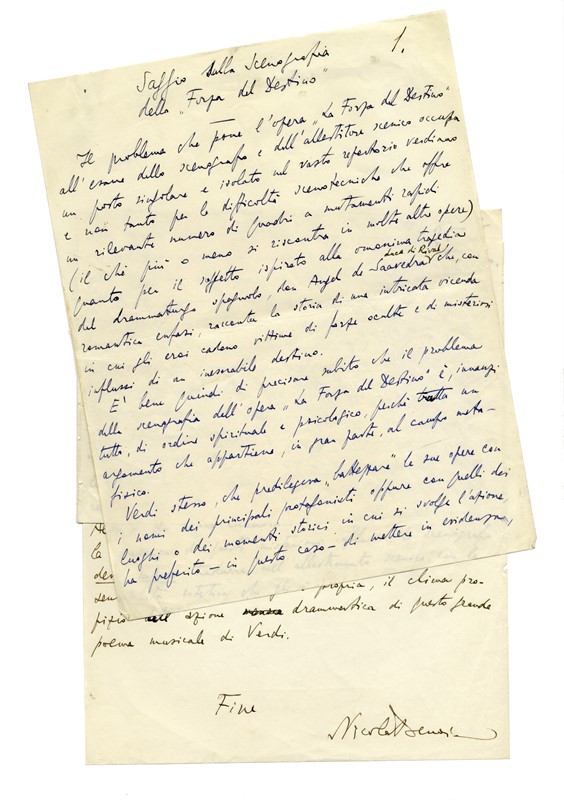 1.
Saggio sulla Scenografia
della „Forza del Destino"
Il problema che pone l'opera „La Forza del Destino"
all'esame dello scenografo e dell'allestitore scenico occupa
un posto singolare e isolato nel vasto repertorio verdiano
e non tanto per le difficoltà scenotecniche che offre
un rilevante numero di quadri a mutamenti rapidi
(il che più o meno si riscontra in molte altre opere)
quanto per il soggetto ispirato alla omonima tragedia
del drammaturgo spagnolo, don Angel de Saavedra duca di Rivas che, con
romantica enfasi, racconta la storia di una intricata vicenda
in cui gli eroi cadono vittime di forze occulte e di misteriosi
influssi di un inesorabile destino.
E' bene quindi di precisare subito che il problema
della scenografia dell'opera „La Forza del Destino" è, innanzi
tutto, di ordine spirituale e psicologico, perchè tratta un
argomento che appartiene, in gran parte, al campo meta-
fisico.
Verdi stesso, che prediligeva „battezzare" le sue opere con
i nomi dei principali protagonisti oppure con quelli dei
luoghi o dei momenti storici in cui si svolge l'azione,
ha preferito – in questo caso – di mettere in evidenza,
la
sen
e propria, il clima pro-
pizio azione drammatica di questo grande
poema musicale di Verdi.
Fine
Nicola Benois